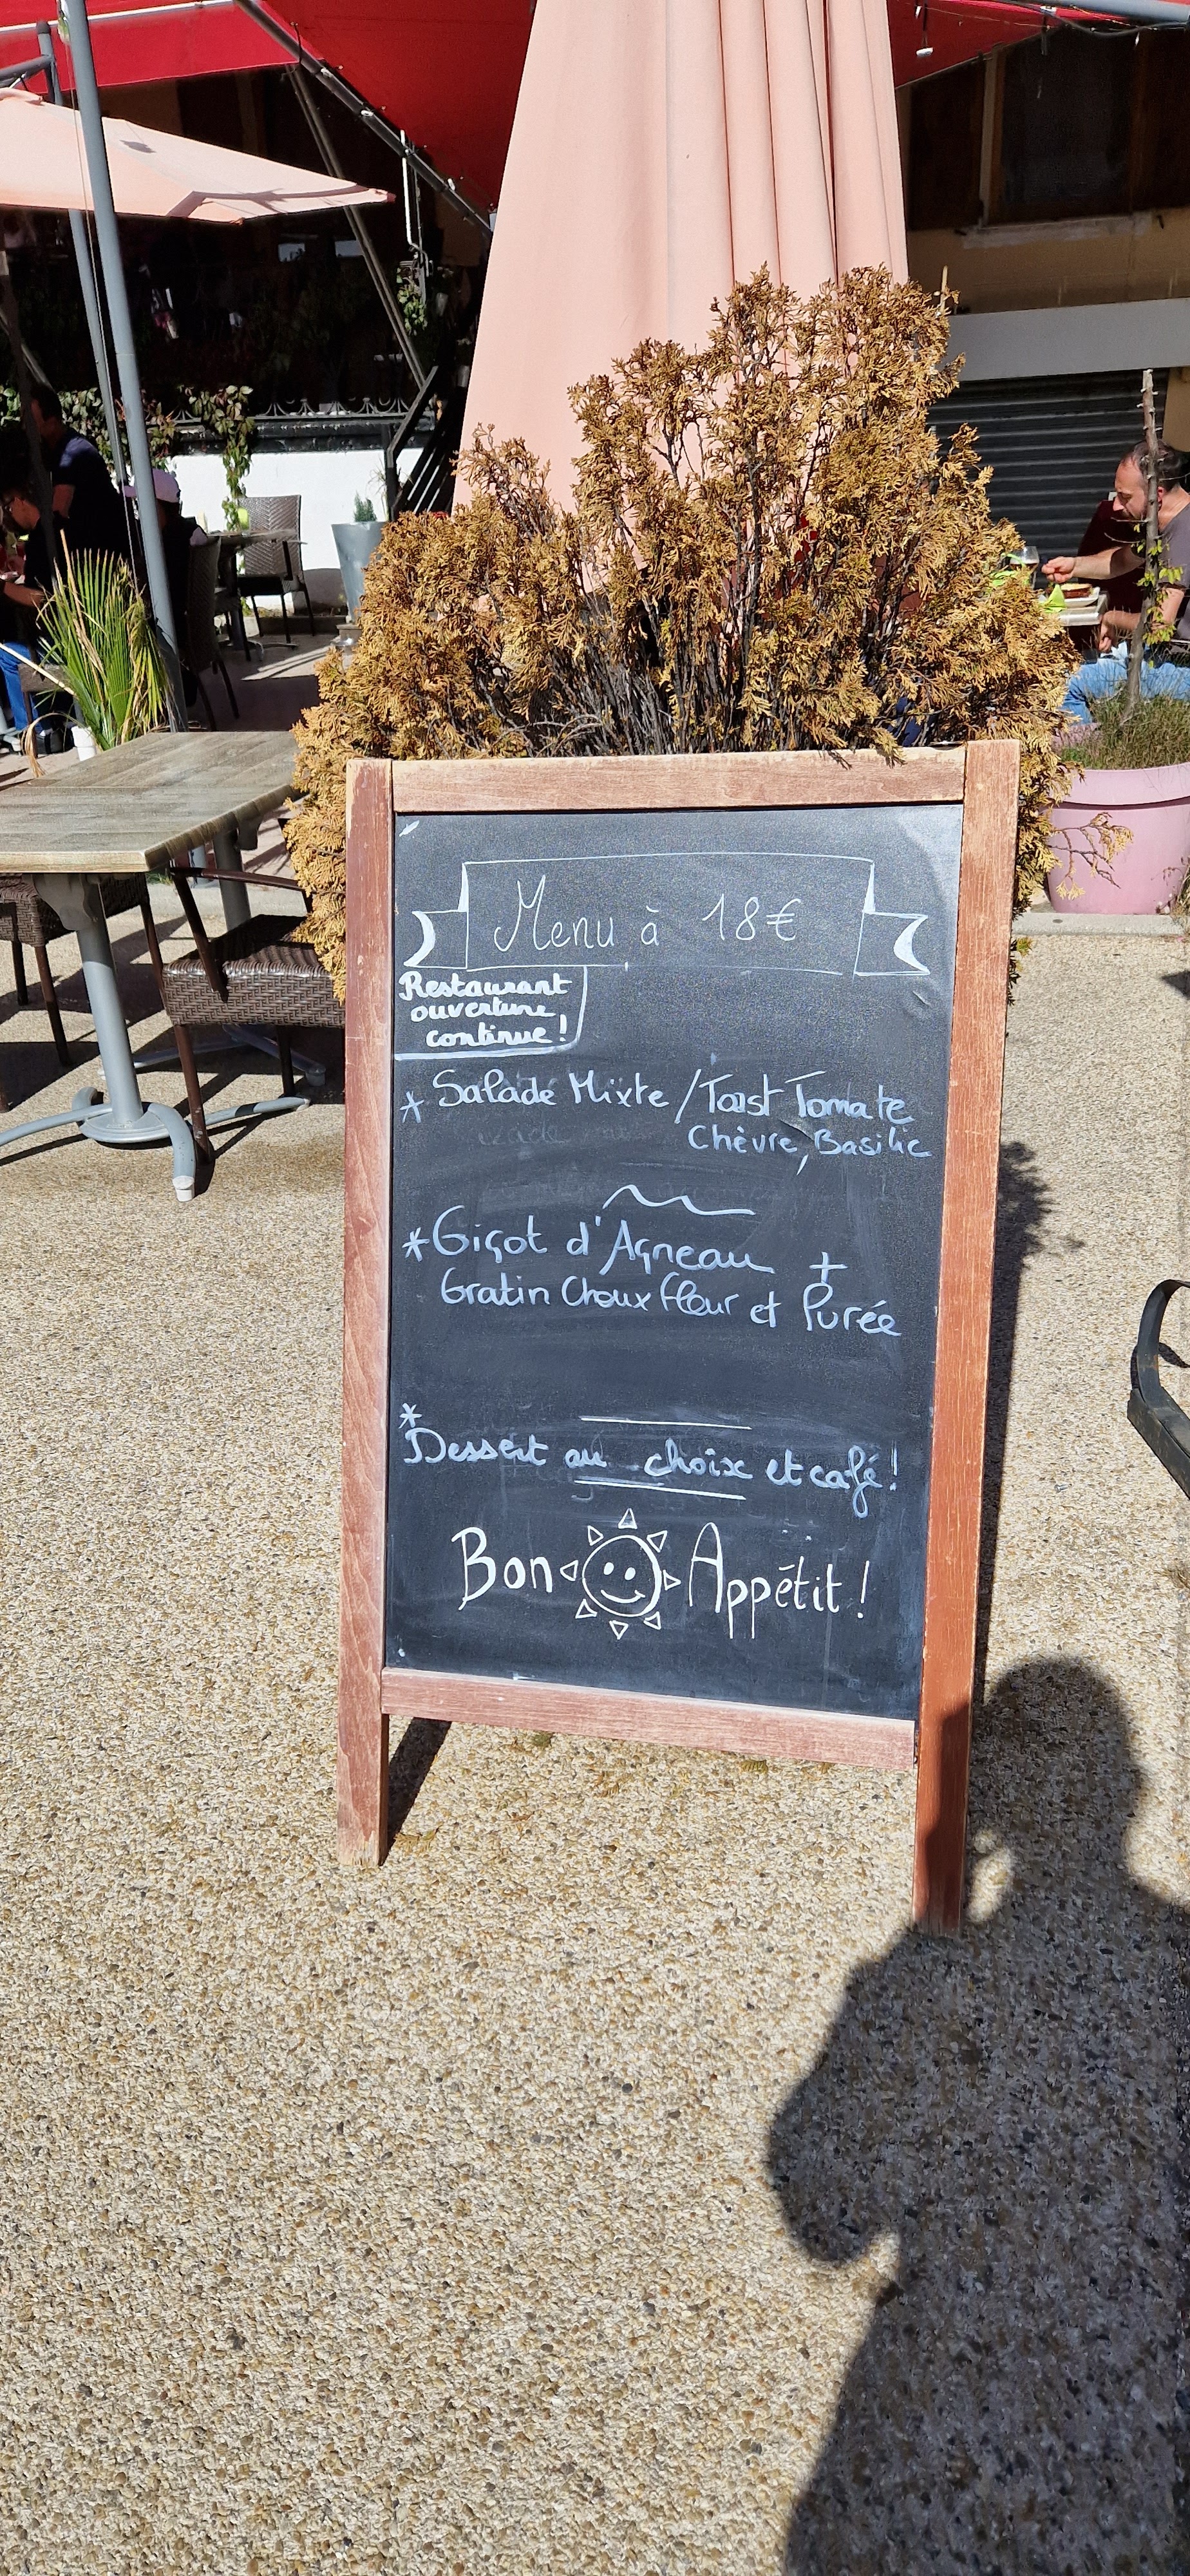 Menu à 18€
Restaurant
ouverture
continue !
* Salade Mixte / Toast Tomate
Chèvre, Basilic
* Gigot d'Agneau +
Gratin Choux fleur et Purée
*
Dessert au choix et café !
Bon Appétit !